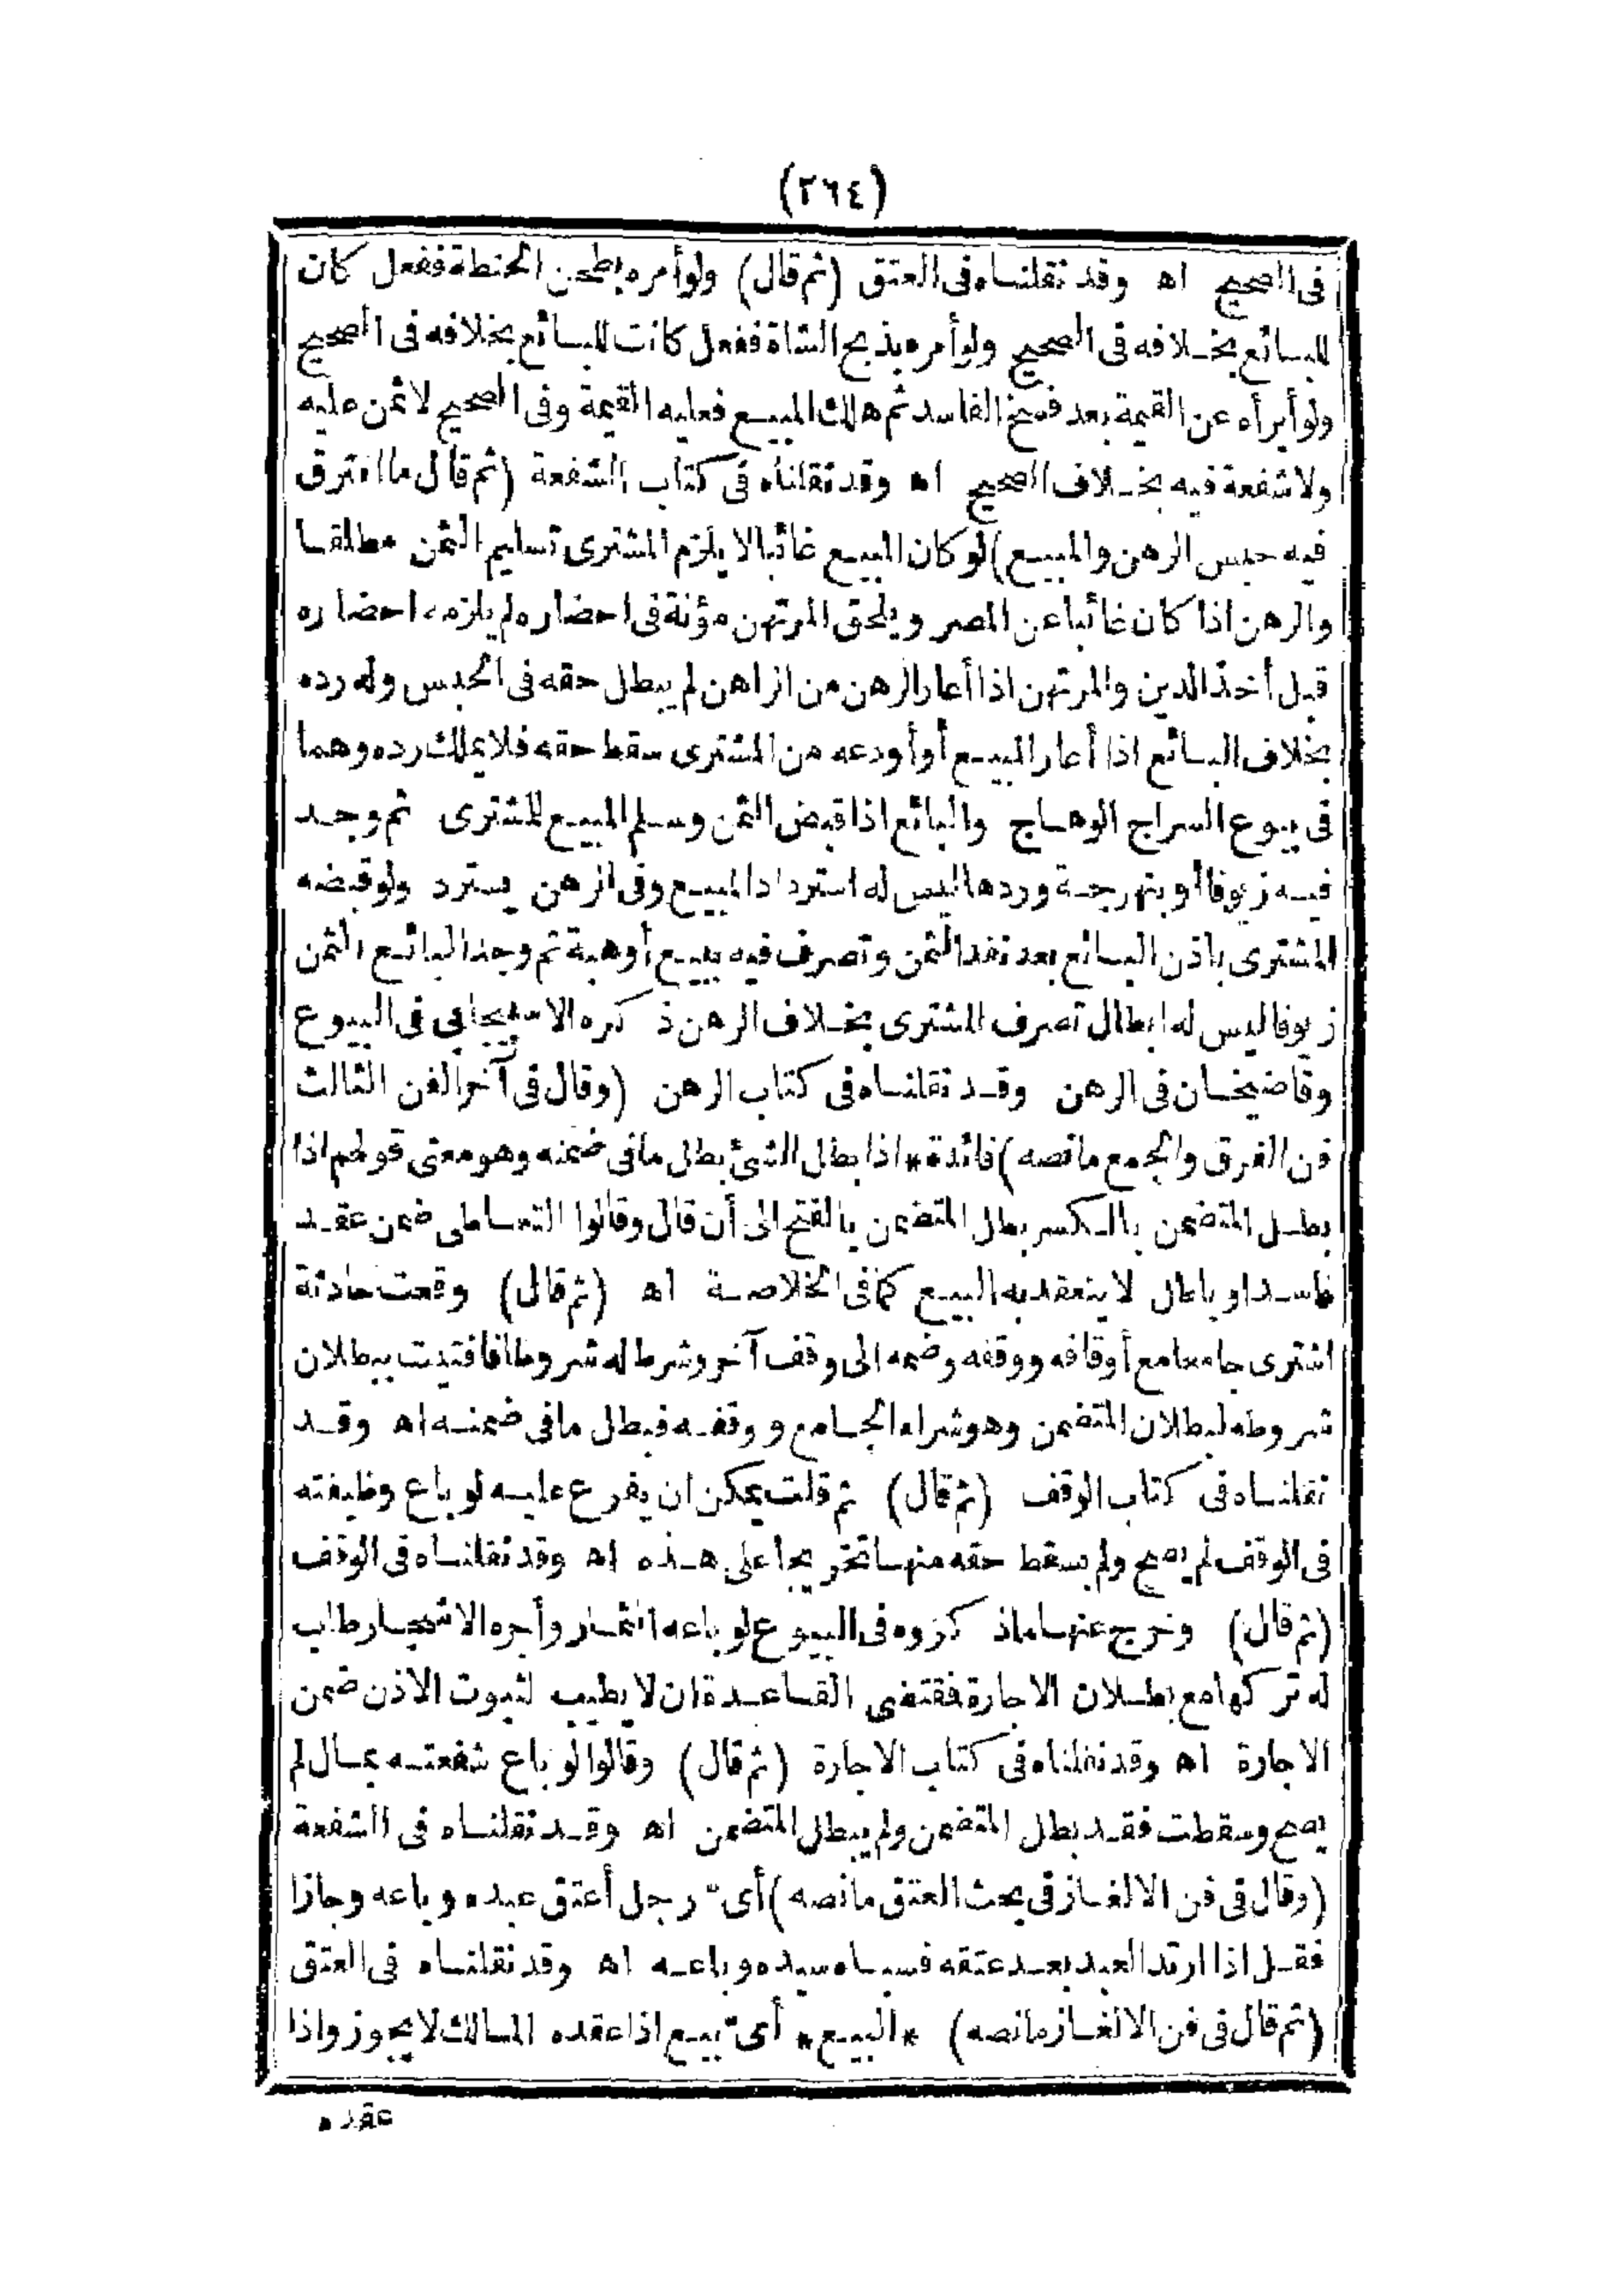 (٢٦٤)
فى الصحيح اه وقد نقلناه فى العتق (ثم قال) ولو أمره بطحن الحنطة ففعل كان
للبائع بخلافه فى الصحيح ولو أمره بذبح الشاة ففعل كانت للبائع بخلافه فى الصحيح
ولو أبرأه عن القيمة بعد فسخ الفاسد ثم هلك المبيع فعليه القيمة وفى الصحيح لا ثمن عليه
ولا شفعة فيه بخلاف الصحيح اه وقد نقلناه فى كتاب الشفعة (ثم قال ما افترق
فيه حبس الرهن والمبيع) لو كان المبيع غائبا لا يلزم المشترى تسليم الثمن مطلقا
والرهن اذا كان غائبا عن المصر ويلحق المرتهن مؤنة فى احضاره لم يلزمه احضاره
قبل أخذ الدين والمرتهن اذا أعار الرهن من الراهن لم يبطل حقه فى الحبس وله رده
بخلاف البائع اذا أعار المبيع أو أودعه من المشترى سقط حقه فلا يملك رده وهما
فى بيوع السراج الوهاج والبائع اذا قبض الثمن وسلم المبيع للمشترى ثم وجد
فيه زيوفا أو بنهرجة وردها ليس له استرداد المبيع وفى الرهن يسترد ولو قبضه
المشترى باذن البائع بعد نقد الثمن وتصرف فيه ببيع أو هبة ثم وجد البائع الثمن
زيوفا ليس له ابطال تصرف المشترى بخلاف الرهن ذكره الاسبيجابى فى البيوع
وقاضيخان فى الرهن وقد نقلناه فى كتاب الرهن (وقال فى آخر الفن الثالث
فن الفرق والجمع ما نصه) فائدة * اذا بطل الشئ بطل ما فى ضمنه وهو معنى قولهم اذا
بطل المتضمن بالكسر بطل المتضمن بالفتح الى أن قال وقالوا التعاطى ضمن عقد
فاسد او باطل لا ينعقد به البيع كما فى الخلاصة اه (ثم قال) وقعت حادثة
اشترى جامعا مع أوقافه ووقفه وضمه الى وقف آخر وشرط له شروطا فافتيت ببطلان
شروطه لبطلان المتضمن وهو شراء الجامع ووقفه فبطل ما فى ضمنه اه وقد
نقلناه فى كتاب الوقف (ثم قال) ثم قلت يمكن ان يفرع عليه لو باع وظيفته
فى الوقف لم يصح ولم يسقط حقه منها تخريجا على هذه اه وقد نقلناه فى الوقف
(ثم قال) وخرج عنها ما ذكروه فى البيوع لو باعه الثمار وأجره الاشجار طاب
له تركها مع بطلان الاجارة فمقتضى القاعدة ان لا يطيب لثبوت الاذن ضمن
الاجارة اه وقد نقلناه فى كتاب الاجارة (ثم قال) وقالوا لو باع شفعته بمال لم
يصح وسقطت فقد بطل المتضمن ولم يبطل المتضمن اه وقد نقلناه فى الشفعة
(وقال فى فن الالغاز فى بحث العتق ما نصه) أى رجل أعتق عبده وباعه وجازا
فقل اذا ارتد العبد بعد عتقه فسباه سيده وباعه اه وقد نقلناه فى العتق
(ثم قال فى فن الالغاز ما نصه) * البيع * أى بيع اذا عقده المالك لا يجوز واذا
عقده